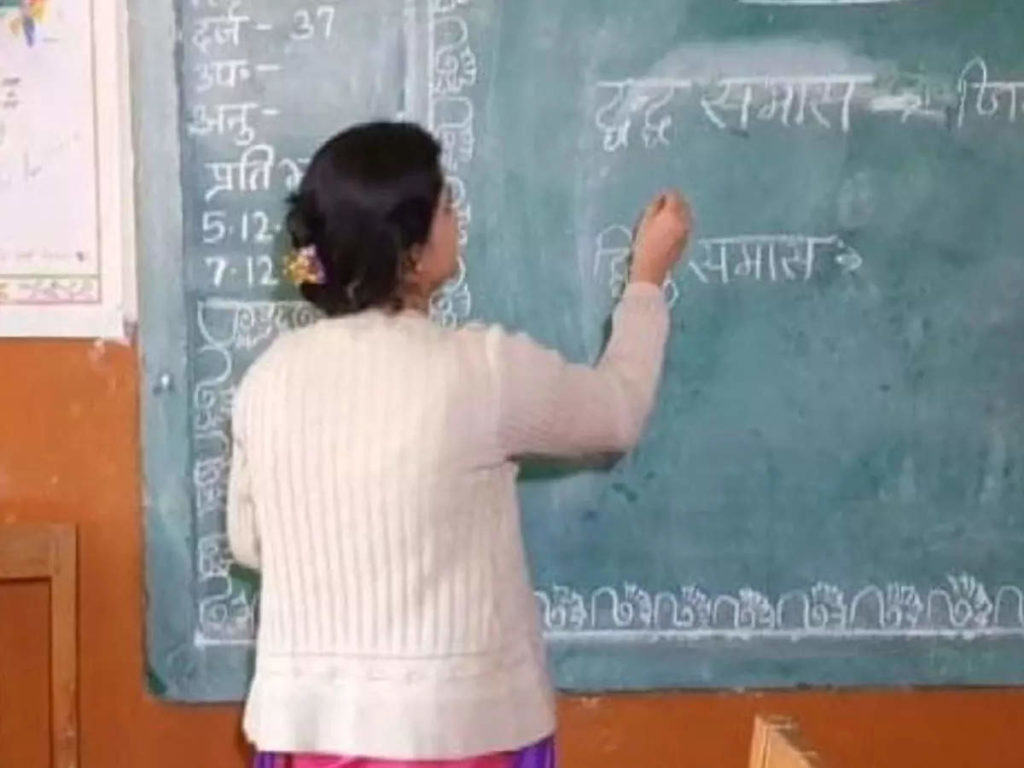 दर्ज - 37
उप० -
अनु -
प्रति
5.12.
7.12
द्वन्द्व समास → जि
समास →